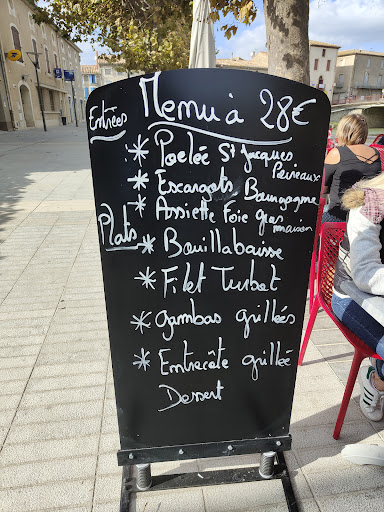 Entrées
Menu à 28€
* Poelée St Jacques
Poireaux
* Escargots Bourgogne
* Assiette Foie gras
maison
Plats
* Bouillabaisse
* Filet Turbot
* Gambas grillées
* Entrecôte grillée
Dessert